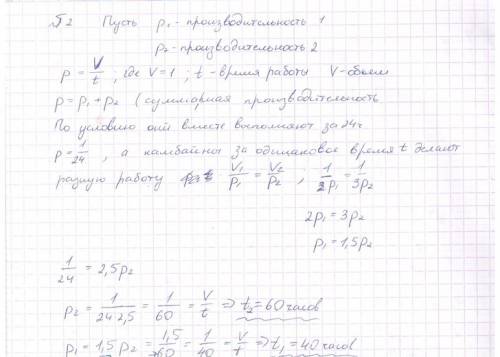 №2 Пусть p₁ - производительность 1
p₂ - производительность 2
p = V/t; где V=1; t - время работы V - объем
p = p₁ + p₂ (суммарная производительность
По условию они вместе восполняют за 24ч
p = 1/24, а камбайны за одинаковое время t делают
разную работу V₁/p₁ = V₂/p₂ ; 1/2p₁ = 1/3p₂
2p₁ = 3p₂
p₁ = 1,5p₂
1/24 = 2,5p₂
p₂ = 1/24·2,5 = 1/60 = V/t ⇒ t₂ = 60 часов
p₁ = 1,5p₂ = 1,5/60 = 1/40 = V/t ⇒ t₁ = 40 часов